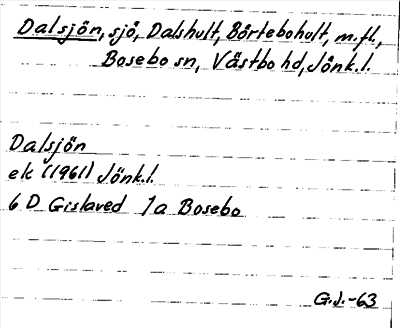 Dalsjön, sjö, Dalshult, Börtebohult, m.fl.,
Bosebo sn, Västbo hd, Jönk.l.
Dalsjön
ek (1961) Jönk.l.
6 D Gislaved 1a Bosebo
G.J.-63